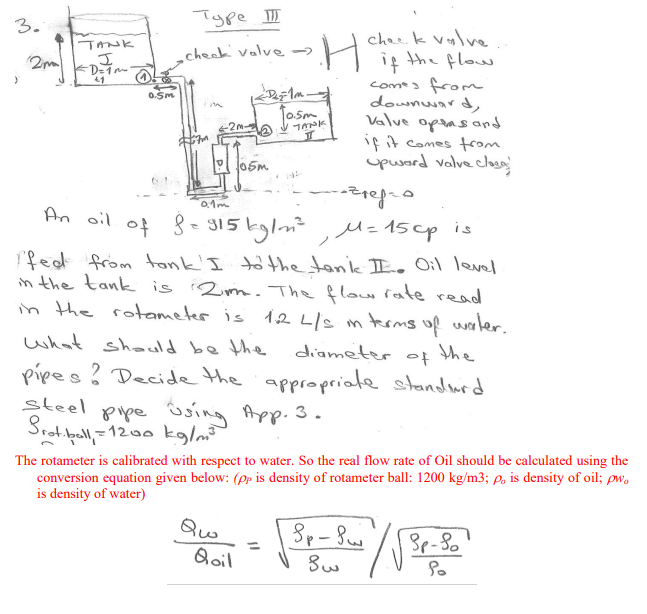 3.
Type III
TANK
I
2m
D=1m
1
check valve →
check valve
if the flow
comes from
downward,
Valve opens and
if it comes from
upward valve closes
0.5m
D₂=1m
0.5m
TANK
II
2m
2
7m
0.5m
0.1m
Zref=0
An oil of ρ = 915 kg/m³, μ = 15cp is
fed from tank I to the tank II. Oil level
in the tank is 2m. The flow rate read
in the rotameter is 1.2 L/s in terms of water.
What should be the diameter of the
pipes? Decide the appropriate standard
steel pipe using App. 3.
ρrot.ball = 1200 kg/m³
The rotameter is calibrated with respect to water. So the real flow rate of Oil should be calculated using the
conversion equation given below: (ρP is density of rotameter ball: 1200 kg/m3; ρo is density of oil; ρwo
is density of water)
Qw/Qoil = √((ρp-ρw)/ρw) / √((ρp-ρo)/ρo)